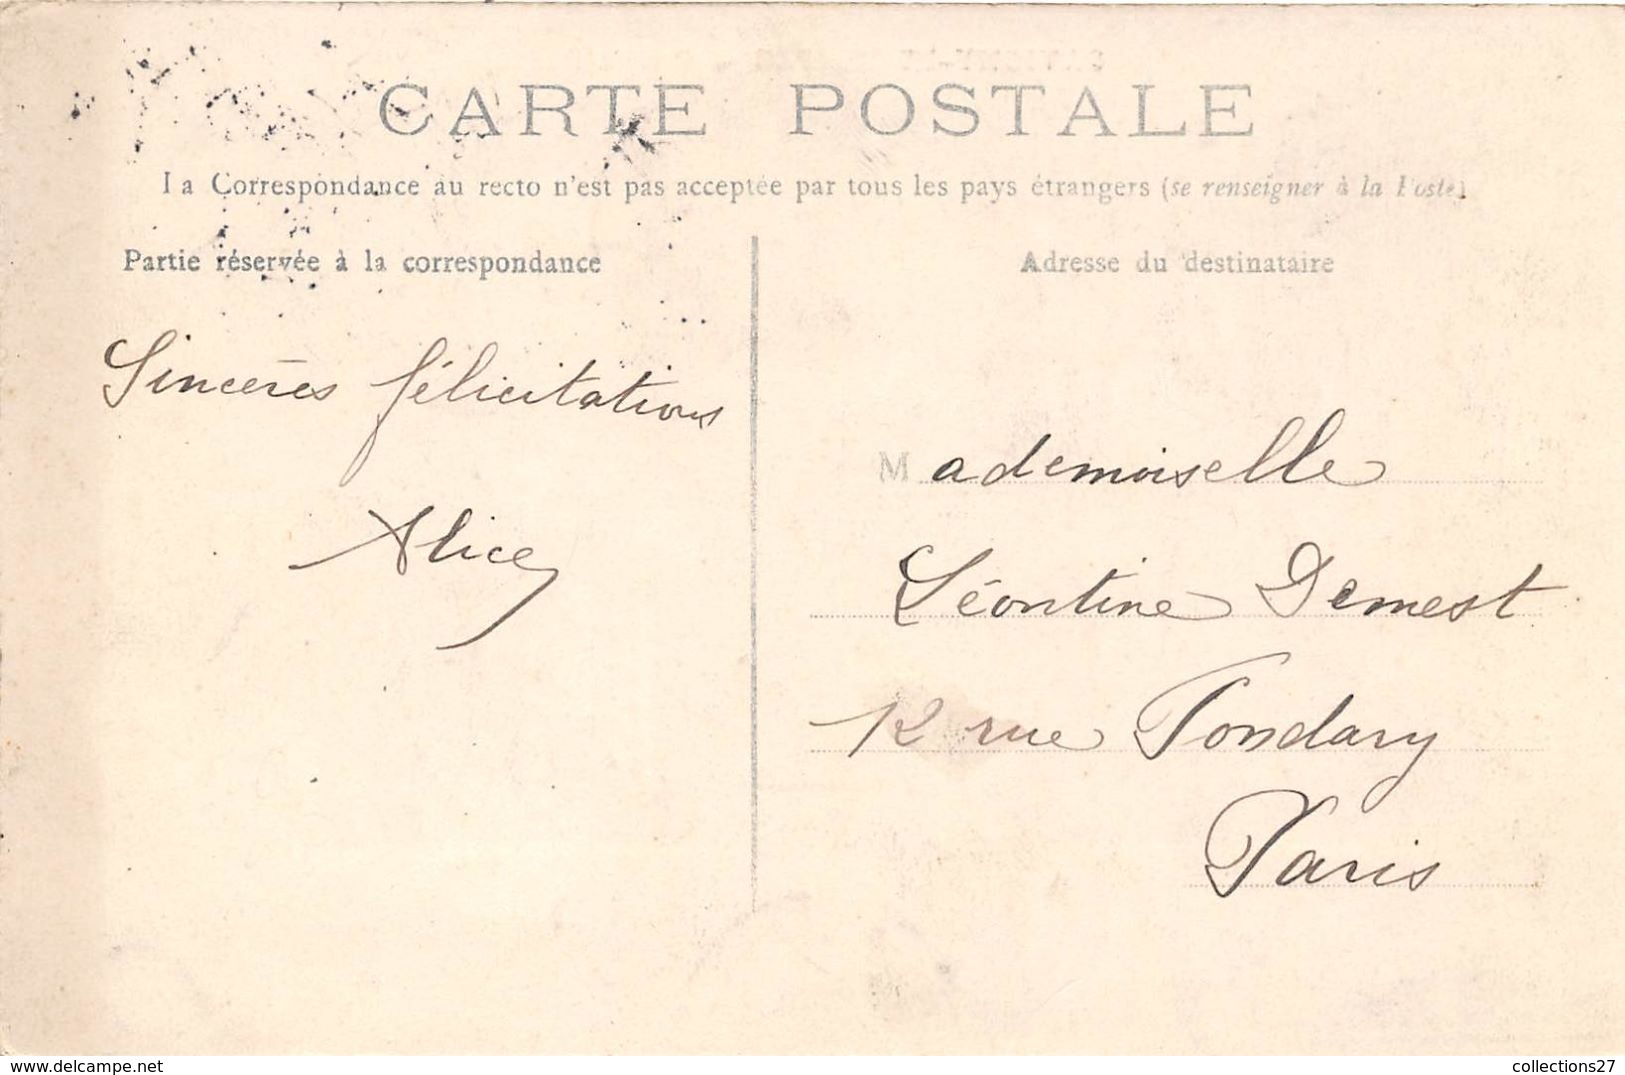 CARTE POSTALE
La Correspondance au recto n'est pas acceptée par tous les pays étrangers (se renseigner à la Poste)
Partie réservée à la correspondance
Adresse du destinataire
Sincères félicitations
Alice
Mademoiselle
Léontine Demest
12 rue Fondary
Paris
https://www.delcampe.net
collections27